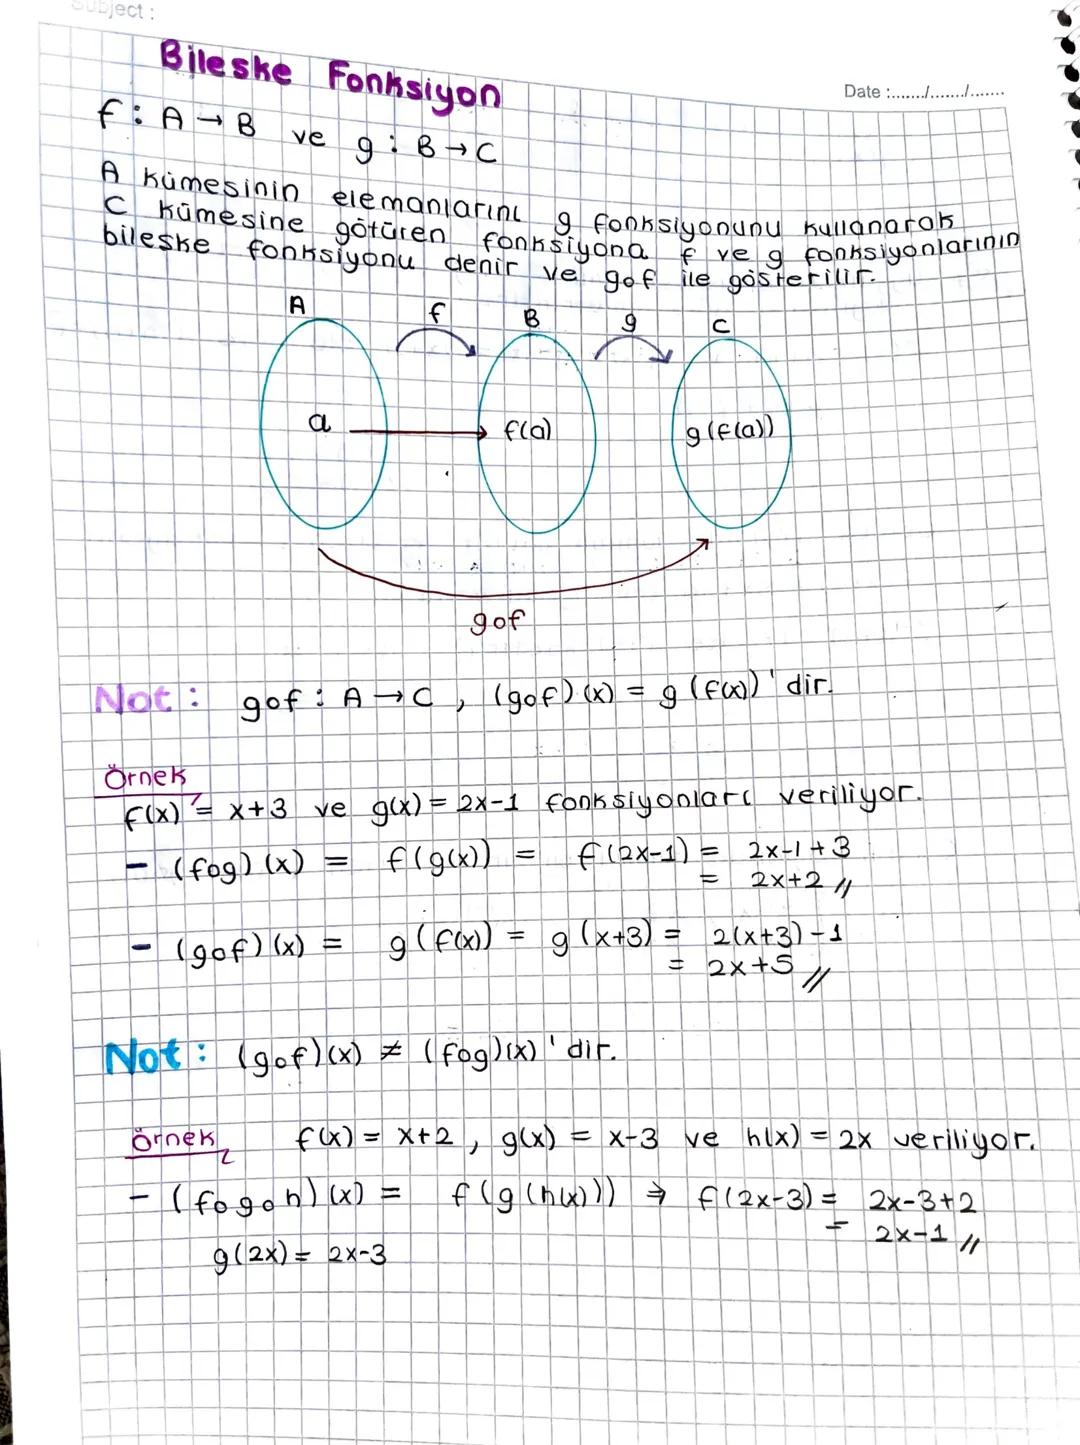 Subject :
Date :......./......./.......
Bileske Fonksiyon
f : A → B ve g : B → C
A kümesinin elemanlarını g fonksiyonunu kullanarak
C kümesine götüren fonksiyona f ve g fonksiyonlarının
bileske fonksiyonu denir ve gof ile gösterilir.
A f B g C
a f(a) g(f(a))
gof
Not : gof : A → C , (gof)(x) = g(f(x))' dir.
Örnek
f(x) = x+3 ve g(x) = 2x-1 fonksiyonları veriliyor.
- (fog)(x) = f(g(x)) = f(2x-1) = 2x-1+3
= 2x+2 //
- (gof)(x) = g(f(x)) = g(x+3) = 2(x+3)-1
= 2x+5 //
Not : (gof)(x) ≠ (fog)(x)' dir.
Örnek2 f(x) = x+2 , g(x) = x-3 ve h(x) = 2x veriliyor.
- (fogoh)(x) = f(g(h(x))) ⇒ f(2x-3) = 2x-3+2
= 2x-1 //
g(2x) = 2x-3